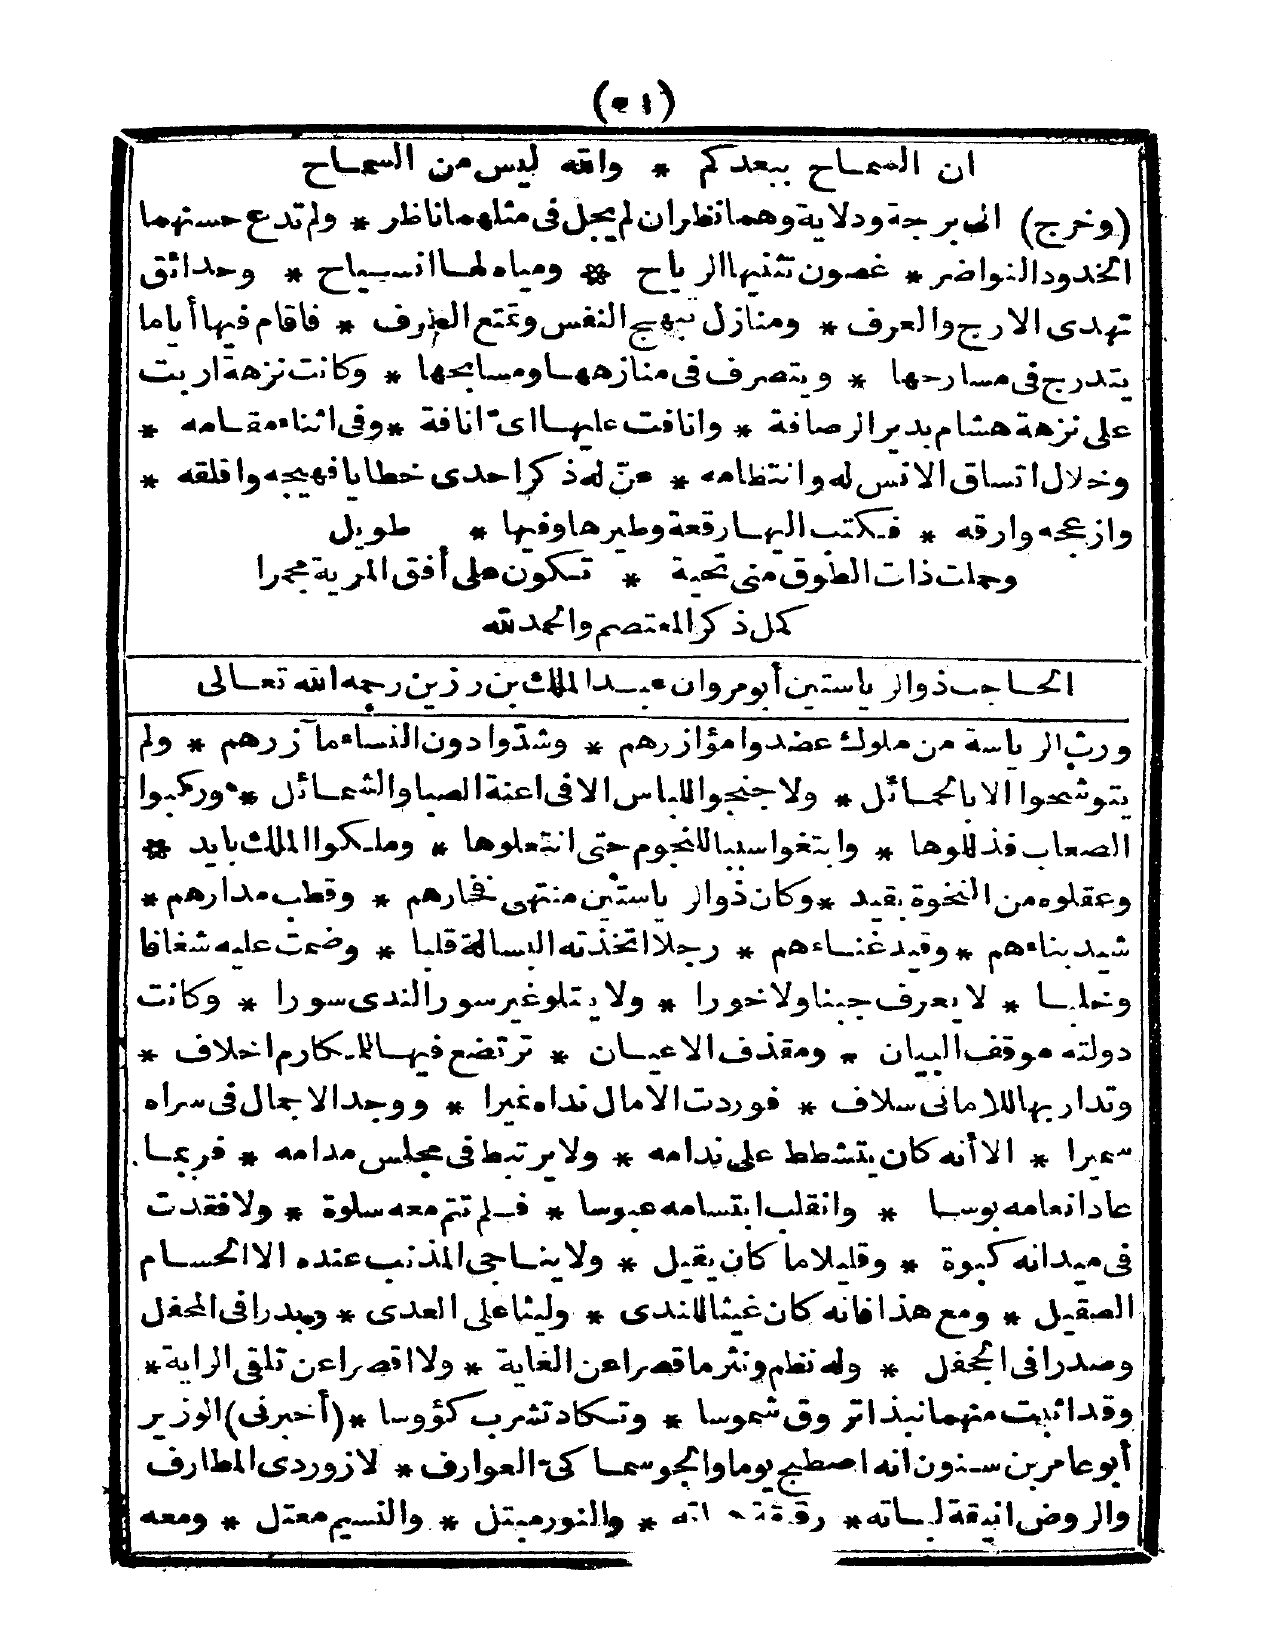 (٥١)
ان السماح ببعدكم * والله ليس من السماح
(وخرج) الى برجة ودلاية وهما نظران لم يجل في مثلهما ناظر * ولم تدع حسنهما
الخدود النواضر * غصون تثنيها الرياح * ومياه لها انسياح * وحدائق
تهدى الارج والعرف * ومنازل تبهج النفس وتمتع الطرف * فاقام فيها أياما
يتدرج في مسارحها * ويتصرف في منازهها ومسايحها * وكانت نزهة اربت
على نزهة هشام بدير الرصافة * وانافت عليها اى انافة * وفى اثناء مقامه *
وخلال اتساق الانس له وانتظامه * عنّ له ذكر احدى خطاياه فهيجه واقلقه *
وازعجه وارقه * فكتب اليها رقعة وطيرها وفيها * طويل
وحملت ذات الطوق منى تحية * تكون على أفق المرية مجمرا
كمل ذكر المعتصم والحمد لله
الحاجب ذو الرياستين أبو مروان عبد الملك بن رزين رحمه الله تعالى
ورث الرياسة من ملوك عضدوا مؤازرهم * وشدّوا دون النساء مآزرهم * ولم
يتوشحوا الا بالحمائل * ولا جنحوا للباس الا فى اعنة الصبا والشمائل * وركبوا
الصعاب فذللوها * وابتغوا سببا للنجوم حتى انتعلوها * وملكوا الملك بايد *
وعقلوه من النخوة بقيد * وكان ذو الرياستين منتهى فخارهم * وقطب مدارهم *
شيد بناءهم * وقيد غناءهم * رجلا اتخذته البسالة قلبا * وضمت عليه شغافا
وخلبا * لا يعرف جبنا ولا خورا * ولا يتلو غير سور الندى سورا * وكانت
دولته موقف البيان * ومقذف الاعيان * ترتضع فيها للمكارم اخلاف *
وتدار بها للامانى سلاف * فوردت الامال نداه نميرا * ووجد الاجمال فى سراه
سميرا * الا أنه كان يتشطط على ندامه * ولا يرتبط فى مجلس مدامه * فربما
عاد انعامه بوسا * وانقلب ابتسامه عبوسا * فلم تتم معه سلوة * ولا فقدت
فى ميدانه كبوة * وقليلا ما كان يقيل * ولا يناجى المذنب عنده الا الحسام
الصقيل * ومع هذا فانه كان غيثا للندى * وليثا على العدى * وبدرا فى المحفل
وصدرا فى الجحفل * وله نظم ونثر ما قصرا عن الغاية * ولا اقصرا عن تلقى الراية *
وقد اثبت منهما نبذا تروق شموسا * وتكاد تشرب كؤوسا * (أخبرنى) الوزير
أبو عامر بن سنون انه اصطبح يوما والجو سماكىّ العوارف * لازوردى المطارف
والروض انيقة لباته * رقيقة هباته * والنور مبتل * والنسيم معتل * ومعه